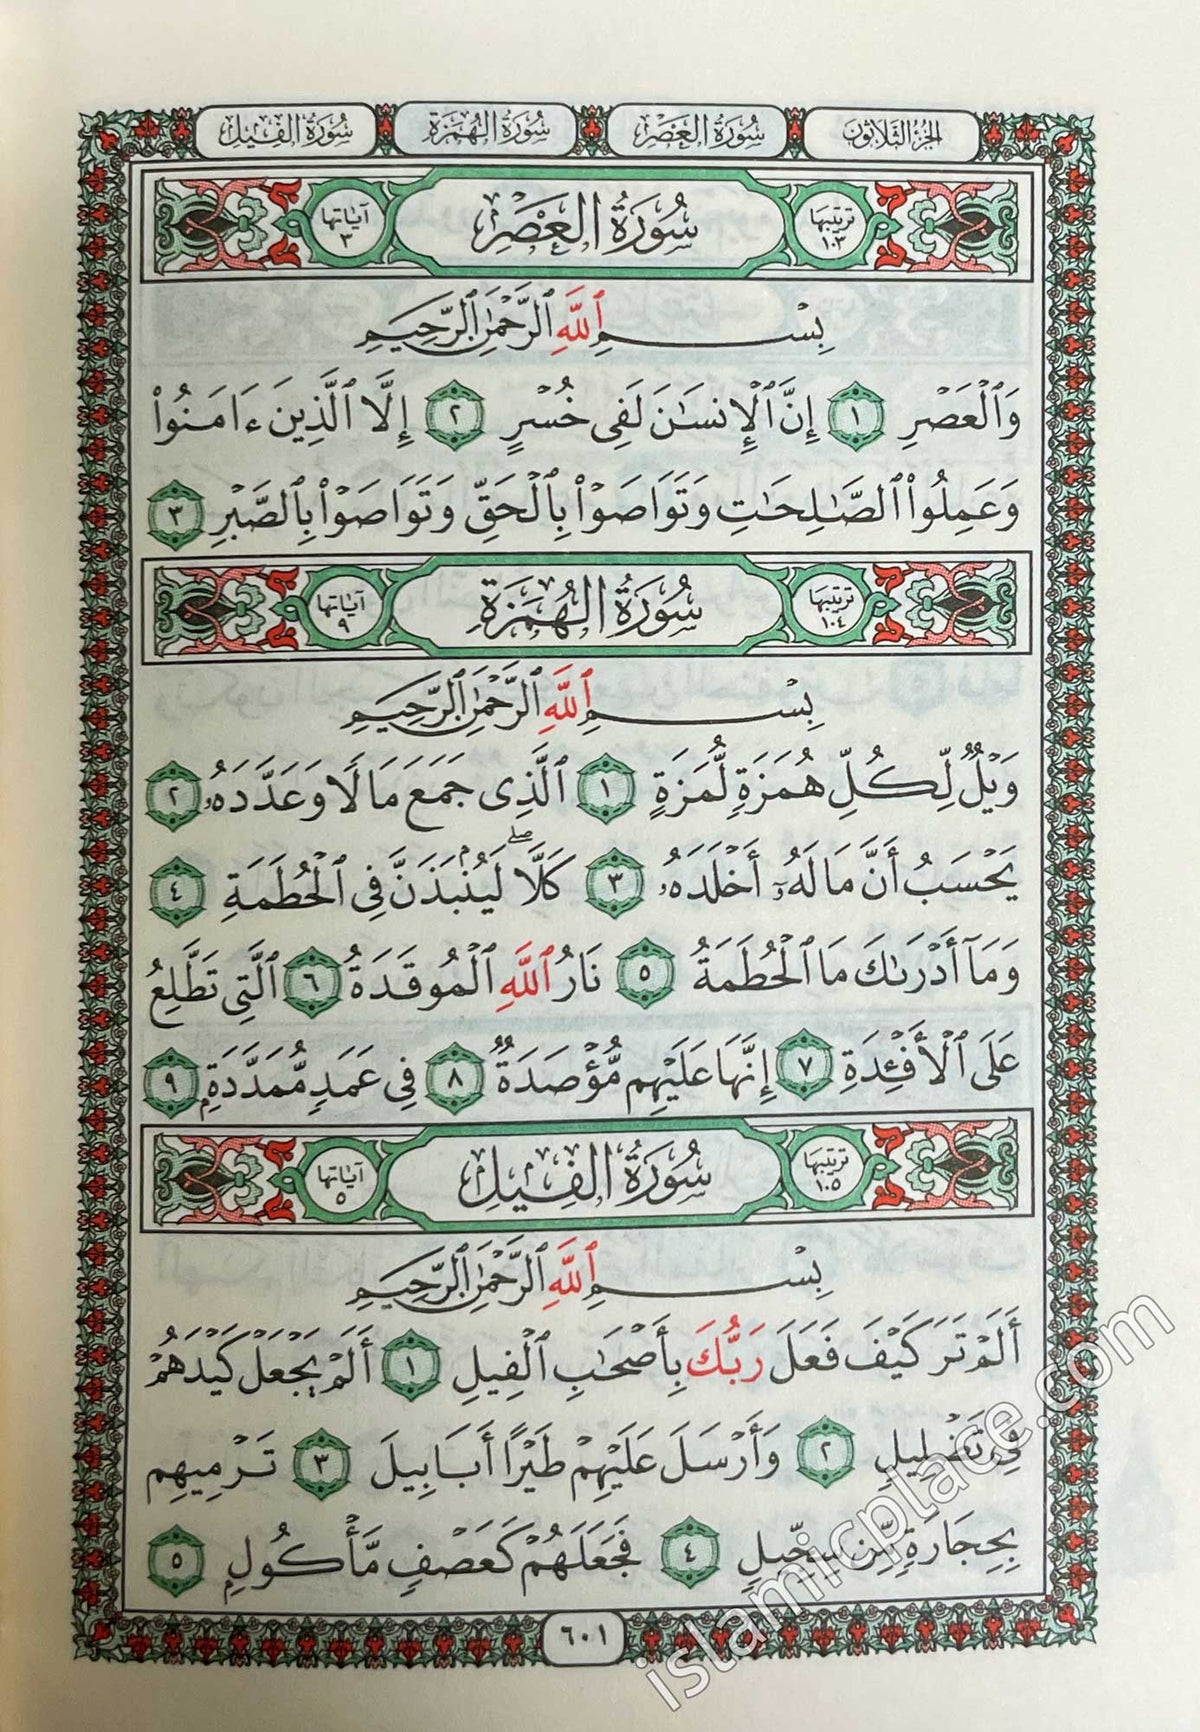 الجزء الثلاثون سورة العصر سورة الهمزة سورة الفيل
ترتيبها ١٠٣ سُورَةُ العَصْرِ آياتها ٣
بِسْمِ ٱللَّهِ ٱلرَّحْمَٰنِ ٱلرَّحِيمِ
وَٱلْعَصْرِ ١ إِنَّ ٱلْإِنسَٰنَ لَفِى خُسْرٍ ٢ إِلَّا ٱلَّذِينَ ءَامَنُوا۟
وَعَمِلُوا۟ ٱلصَّٰلِحَٰتِ وَتَوَاصَوْا۟ بِٱلْحَقِّ وَتَوَاصَوْا۟ بِٱلصَّبْرِ ٣
ترتيبها ١٠٤ سُورَةُ الهُمَزَةِ آياتها ٩
بِسْمِ ٱللَّهِ ٱلرَّحْمَٰنِ ٱلرَّحِيمِ
وَيْلٌ لِّكُلِّ هُمَزَةٍ لُّمَزَةٍ ١ ٱلَّذِى جَمَعَ مَالًا وَعَدَّدَهُۥ ٢
يَحْسَبُ أَنَّ مَالَهُۥٓ أَخْلَدَهُۥ ٣ كَلَّا ۖ لَيُنۢبَذَنَّ فِى ٱلْحُطَمَةِ ٤
وَمَآ أَدْرَىٰكَ مَا ٱلْحُطَمَةُ ٥ نَارُ ٱللَّهِ ٱلْمُوقَدَةُ ٦ ٱلَّتِى تَطَّلِعُ
عَلَى ٱلْأَفْـِٔدَةِ ٧ إِنَّهَا عَلَيْهِم مُّؤْصَدَةٌ ٨ فِى عَمَدٍ مُّمَدَّدَةٍۭ ٩
ترتيبها ١٠٥ سُورَةُ الفِيلِ آياتها ٥
بِسْمِ ٱللَّهِ ٱلرَّحْمَٰنِ ٱلرَّحِيمِ
أَلَمْ تَرَ كَيْفَ فَعَلَ رَبُّكَ بِأَصْحَٰبِ ٱلْفِيلِ ١ أَلَمْ يَجْعَلْ كَيْدَهُمْ
فِى تَضْلِيلٍ ٢ وَأَرْسَلَ عَلَيْهِمْ طَيْرًا أَبَابِيلَ ٣ تَرْمِيهِم
بِحِجَارَةٍ مِّن سِجِّيلٍ ٤ فَجَعَلَهُمْ كَعَصْفٍ مَّأْكُولٍۭ ٥
٦٠١
islamicplace.com